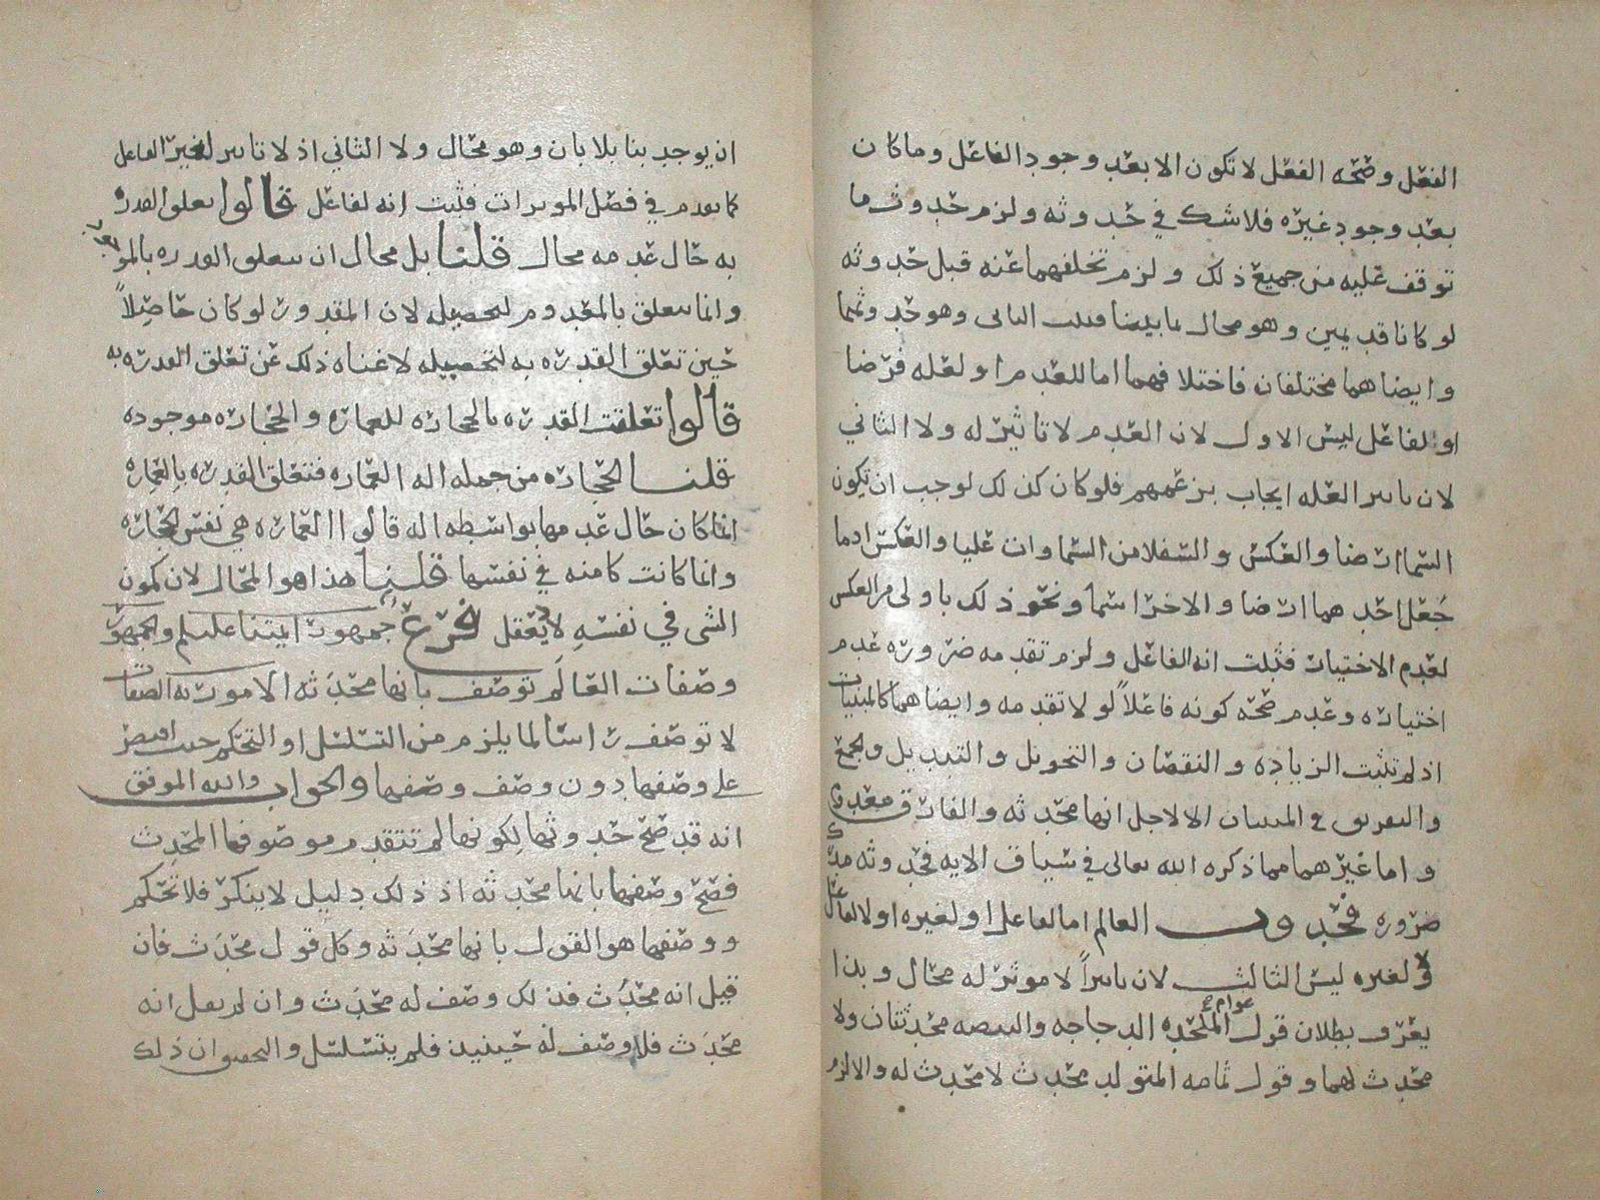 الفعل وصحه الفعل لا تكون الا بعد وجود الفاعل وما كان
بعد وجود غيره فلا شك في حدوثه ولزم حدوث ما
توقف عليه من جميع ذلك ولزم تخلفهما عنه قبل حدوثه
لو كانا قديمين وهو محال لما بينا فثبت الثاني وهو حدوثهما
وايضا هما مختلفان فاختلافهما اما للعدم او لعله فرضا
او لفاعل ليس الاول لان العدم لا تاثير له ولا الثاني
لان تاثير العله ايجاب بزعمهم فلو كان كذلك لوجب ان تكون
السما ارضا والعكس والسفلا من السماوات عليا والعكس اذ ما
جعل احدهما ارضا والاخر سما ونحو ذلك باولى من العكس
لعدم الاختيار فثبت انه الفاعل ولزم تقدمه ضروره عدم
اختياره وعدم صحه كونه فاعلاً لو لا تقدمه وايضا هما كالمبنيات
اذ لم تثبت الزياده والنقصان والتحويل والتبديل والجمع
والتفريق في المبنيان الا لاجل انها محدثه والفارق معدوم
واما غيرهما مما ذكره الله تعالى في سياق الايه فحدوثه مدرك
ضروره فحدوث العالم اما لفاعل او لغيره او لا لفاعل
ولا لغيره ليس الثالث لان تاثيراً لا موثر له محال وبذا
يعرف بطلان قول عوام الملحده الدجاجه والبيضه محدثتان ولا
محدث لهما وقول ثمامه المتولد محدث لا محدث له والا لزم
ان يوجد بنا بلا بان وهو محال ولا الثاني اذ لا تاثير لغير الفاعل
كما تقدم في فصل الموثرات فثبت انه لفاعل قالوا تعلق القدره
به حال عدمه محال قلنا بل محال ان تتعلق القدره بالموجود
وانما تتعلق بالمعدوم لتحصيله لان المقدور لو كان حاصلاً
حين تعلق القدره به لتحصيله لاغناه ذلك عن تعلق القدره به
قالوا تعلقت القدره بالحجاره للعماره والحجاره موجوده
قلنا الحجاره من جمله اله العماره فتتعلق القدره بالعماره
انما كان حال عدمها بواسطه اله قالوا العماره هي نفس الحجاره
وانما كانت كامنه في نفسها قلنا هذا هو المحال لان كمون
الشي في نفسه لا يعقل فرع جمهور ايمتنا عليلم والجمهور
وصفات العالم توصف بانها محدثه الاموريه الصفات
لا توصف راسًا لما يلزم من التسلسل او التحكم حيث اقتصر
على وصفها دون وصف وصفها والجواب والله الموفق
انه قد صح حدوثها لكونها لم تتقدم موصوفها المحدث
فصح وصفها بانها محدثه اذ ذلك دليل لا ينكر فلا تحكم
ووصفها هو القول بانها محدثه وكل قول محدث فان
قيل انه محدث فذلك وصف له محدث وان لم يقل انه
محدث فلا وصف له حينيذ فلم يتسلسل والتحقيق ان ذلك